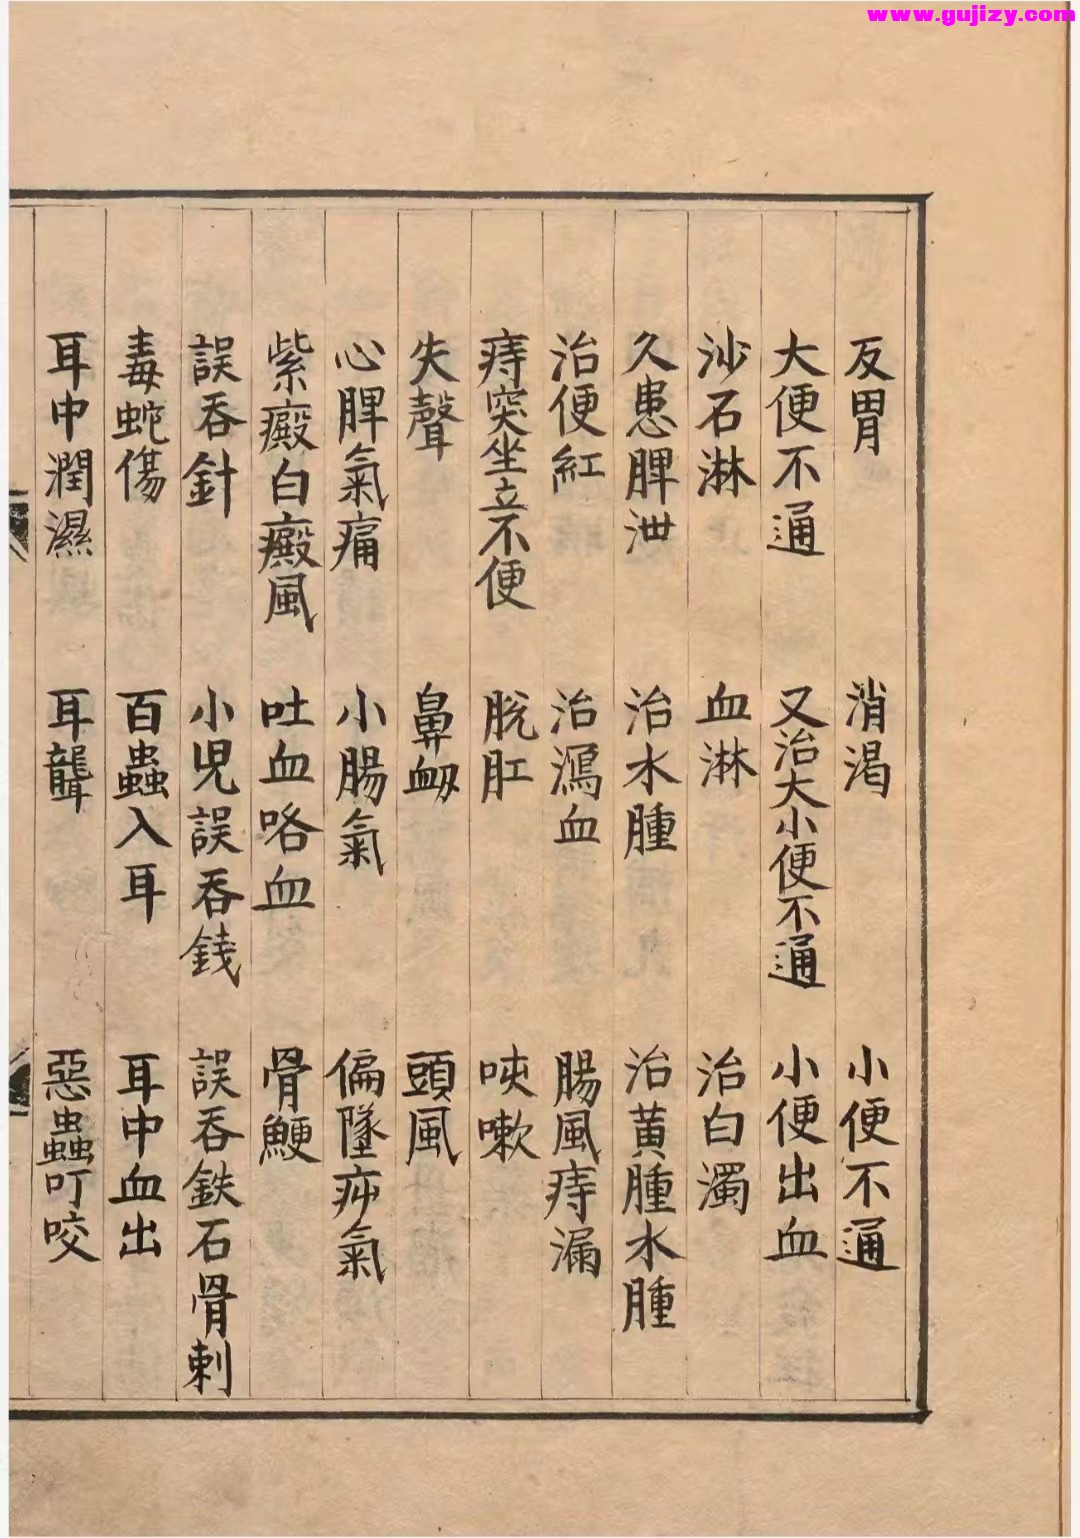 www.gujizy.com
反胃 消渴 小便不通
大便不通 又治大小便不通 小便出血
沙石淋 血淋 治白濁
久患脾泄 治水腫 治黃腫水腫
治便紅 治瀉血 腸風痔漏
痔突坐立不便 脫肛 咳嗽
失聲 鼻衂 頭風
心脾氣痛 小腸氣 偏墜疝氣
紫癜白癜風 吐血咯血 骨鯁
誤吞針 小児誤吞錢 誤吞鉄石骨刺
毒蛇傷 百蟲入耳 耳中血出
耳中潤濕 耳聾 惡蟲叮咬